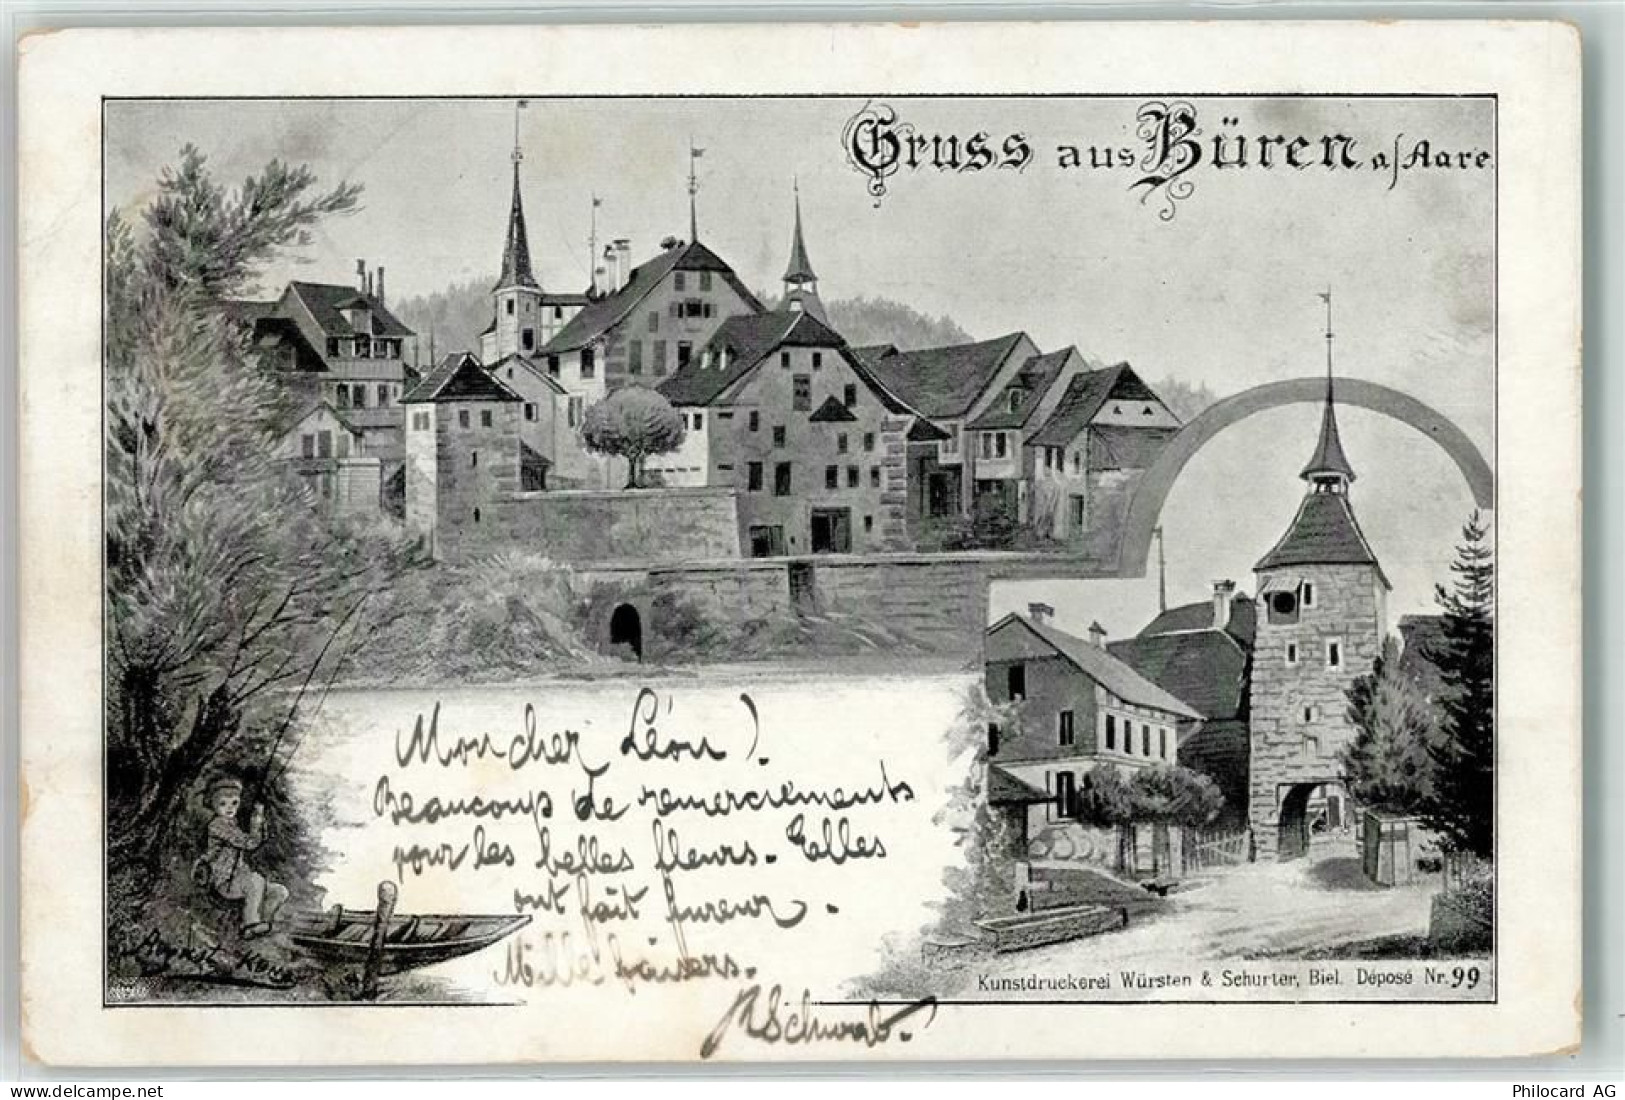 Gruss aus Büren a/Aare.
Mon cher Léon!
Beaucoup de remerciements
pour les belles fleurs. Elles
ont fait fureur.
Mille baisers.
Schwab.
August
Kunstdruckerei Würsten & Schurter, Biel. Déposé Nr. 99
delcampe.net
Philocard AG